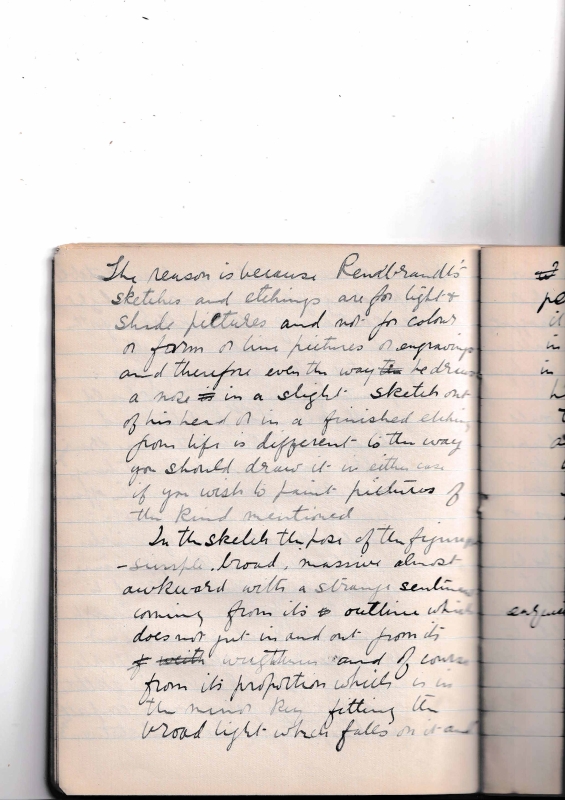 The reason is because Rendbrandt's
sketches and etchings are for light &
shade pictures and not for colour
or form or line pictures or engravings
and therefore even the way he draws
a nose in a slight sketch out
of his head or in a finished etching
from life is different to the way
you should draw it in either case
if you wish to paint pictures of
the kind mentioned
In the sketch the pose of the figure
- simple, broad, massive almost
awkward with a strange sentiment
coming from its outline which
does not jut in and out from its
and of course
from its proportion which is in
the minor key fitting the
broad light which falls on it and